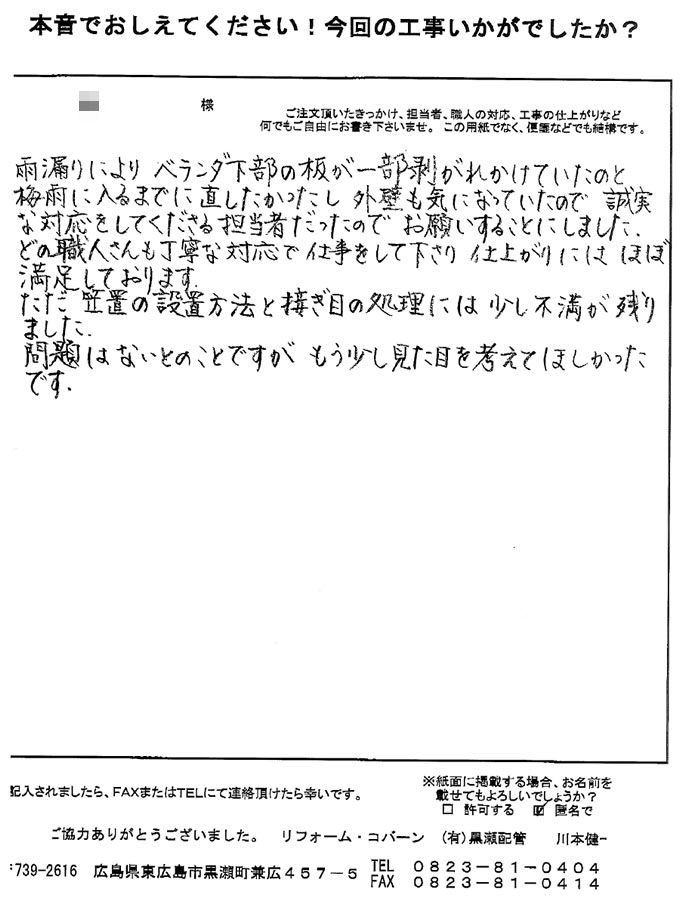 本音でおしえてください！今回の工事いかがでしたか？
様
ご注文頂いたきっかけ、担当者、職人の対応、工事の仕上がりなど
何でもご自由にお書き下さいませ。この用紙でなく、便箋などでも結構です。
雨漏りにより ベランダ下部の板が一部剥がれかけていたのと
梅雨に入るまでに直したかったし 外壁も気になっていたので 誠実
な対応をしてくださる担当者だったので お願いすることにしました.
どの職人さんも丁寧な対応で仕事をして下さり 仕上がりには ほぼ
満足しております.
ただ 笠置の設置方法と接ぎ目の処理には 少し不満が残り
ました.
問題はないとのことですが もう少し見た目を考えてほしかった
です.
記入されましたら、FAXまたはTELにて連絡頂けたら幸いです。
※紙面に掲載する場合、お名前を
載せてもよろしいでしょうか？
□ 許可する ☑ 匿名で
ご協力ありがとうございました。 リフォーム・コバーン (有)黒瀬配管 川本健一
〒739-2616 広島県東広島市黒瀬町兼広４５７－５ TEL ０８２３－８１－０４０４
FAX ０８２３－８１－０４１４